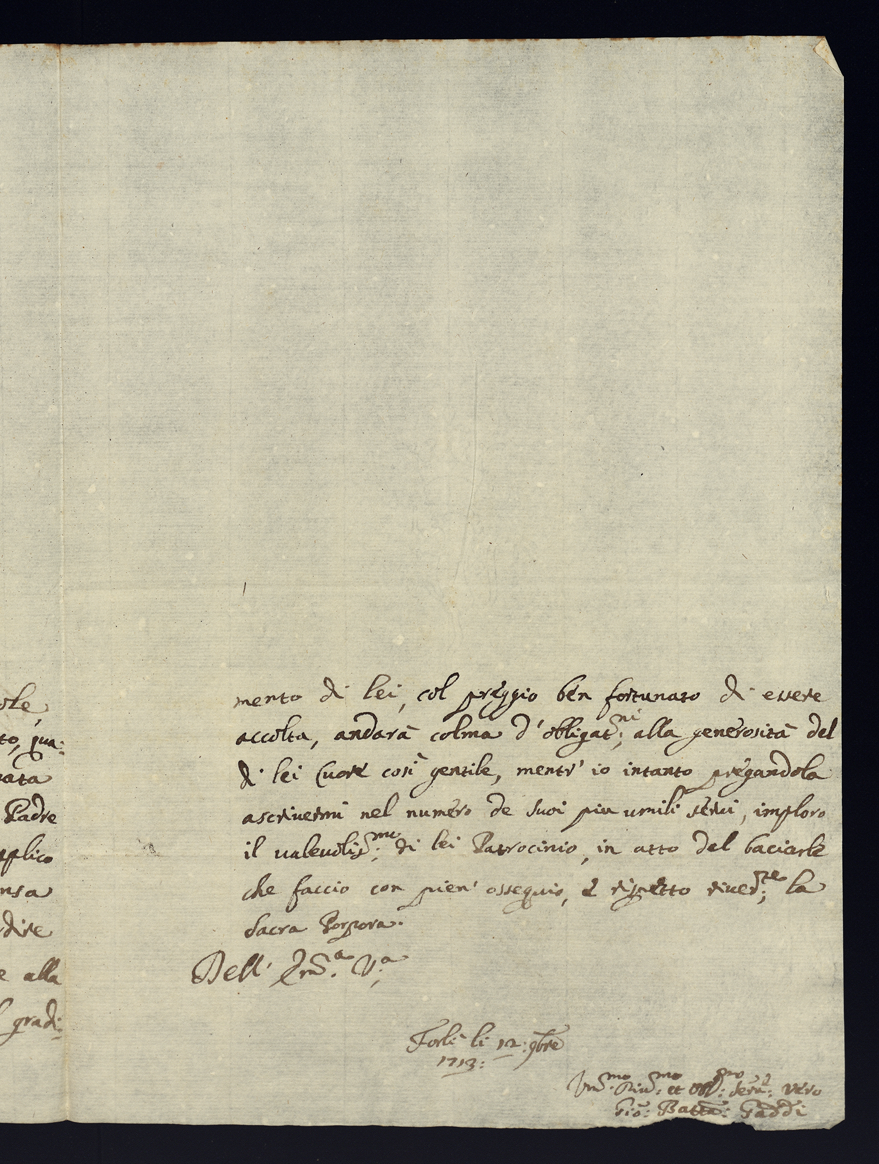 ole,
to, qua:
ata
Padre
pplico
nsa
dire
e alla
gradi:
mento di lei, col preggio ben fortunato di essere
accolta, andarà colma d'obligat:ni alla generosità del
di lei Cuore così gentile, mentr' io intanto pregandola
ascrivermi nel numero de suoi piu umili servi, imploro
il valevolis:mo di lei Patrocinio, in atto del baciarle
che faccio con pien' ossequio, è rispetto river:te la
Sacra Porpora.
Dell' Em:a V:a
Forlì li 12: 9bre
1713:
Um:mo Div:mo et Obl:mo Serv: vero
Gio: Batta: Gaddi